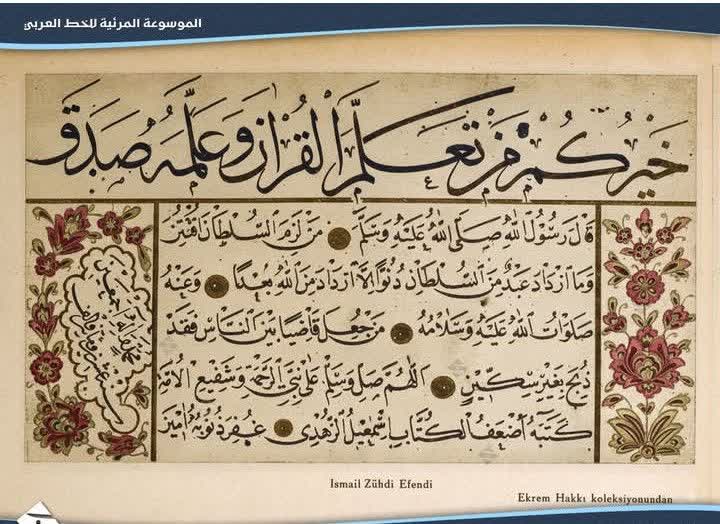 الموسوعة المرئية للخط العربي
خيركم من تعلم القرآن وعلمه صدق
قال رسول الله صلى الله عليه وسلم من لزم السلطان افتتن
وما ازداد عبد من السلطان دنوا الا ازداد من الله بعدا وعنه
صلوات الله عليه وسلامه من جعل قاضيا بين الناس فقد
ذبح بغير سكين اللهم صل وسلم على نبي الرحمة وشفيع الامة
كتبه اضعف الكتاب اسمعيل الزهدي غفر ذنوبه امين
Ismail Zühdi Efendi
Ekrem Hakkı koleksiyonundan